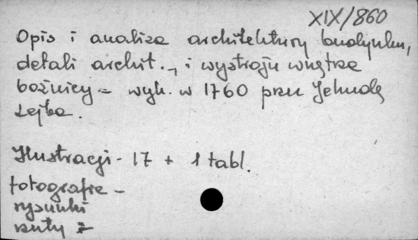 XIX/860
Opis i analiza architektury budynku,
detali archit. i wystroju wnętrza
bożnicy - wyk. w 1760 przez Jehudę
Lejba.
Ilustracji - 17 + 1 tabl.
fotografie -
rysunki
rzuty